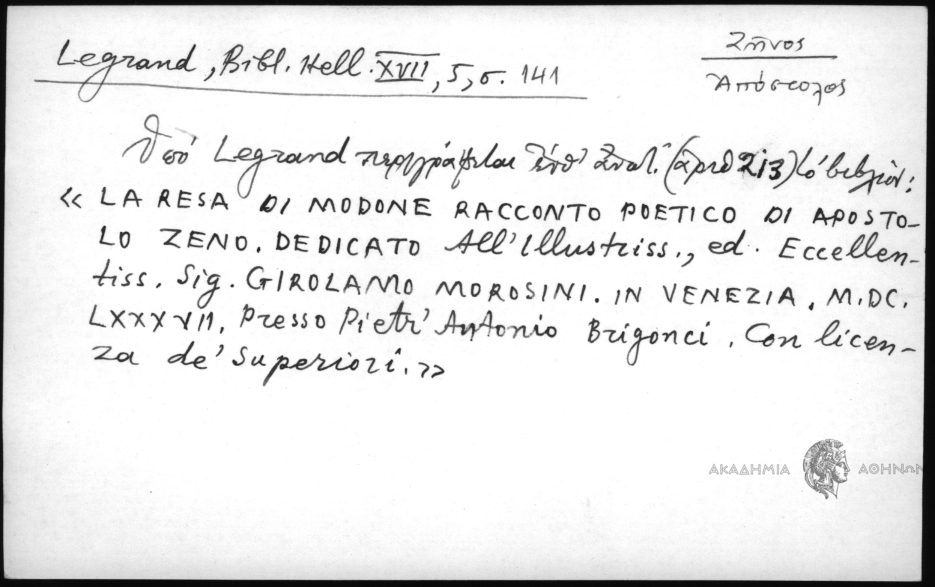 Legrand, Bibl. Hell. XVII, 5, σ. 141
Ζῆνος
Ἀπόστολος
Ὑπό Legrand περιγράφεται ἐνθ' ἀνωτ. (ἀριθ 213) τό βιβλίον:
« LA RESA DI MODONE RACCONTO POETICO DI APOSTO-
LO ZENO. DEDICATO All'Illustriss., ed. Eccellen-
tiss. Sig. GIROLAMO MOROSINI. IN VENEZIA, M.DC.
LXXXVII, Presso Pietr' Antonio Brigonci. Con licen-
za de' Superiori. »
ΑΚΑΔΗΜΙΑ ΑΘΗΝΩΝ